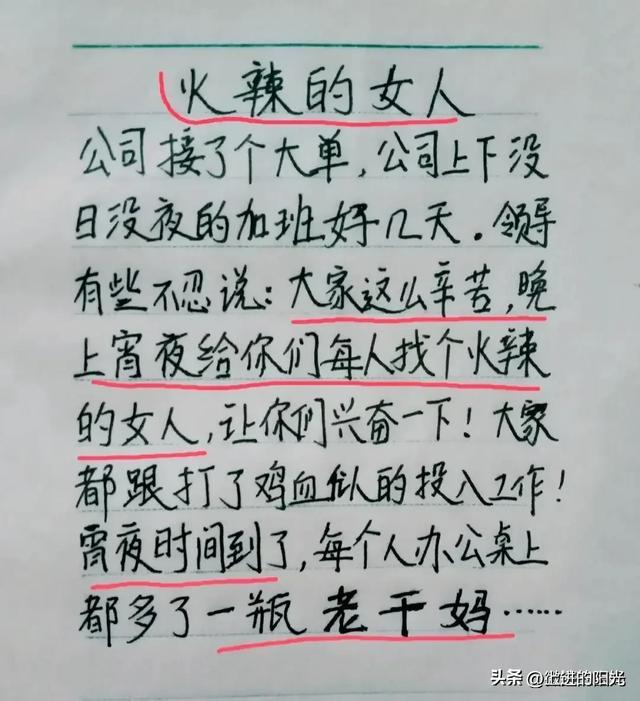 火辣的女人
公司接了个大单，公司上下没
日没夜的加班好几天。领导
有些不忍说：大家这么辛苦，晚
上宵夜给你们每人找个火辣
的女人，让你们兴奋一下！大家
都跟打了鸡血似的投入工作！
宵夜时间到了，每个人办公桌上
都多了一瓶老干妈……
头条 @微进的阳光